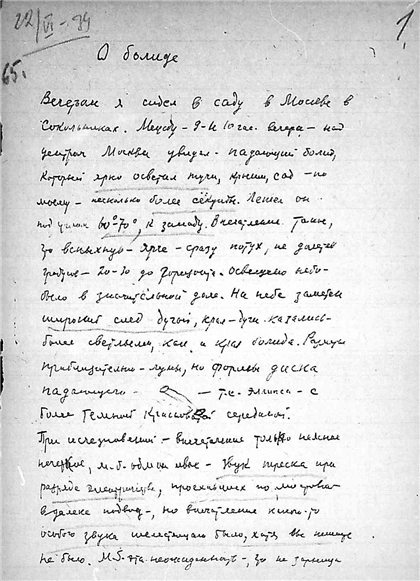 22/VI-34
1
65.
О болиде
Вечером я сидел в саду в Москве в
Сокольниках. Между – 9-ю 10 час. вечера – над
центром Москвы увидел – падающий болид,
который ярко осветил тучи, крыши, сад – по
моему – несколько более секунды. Летел он
под углом 60°-70°, к западу. Впечатление такое,
что вспыхнув – ярче – сразу потух, не долетев
градусов – 20-30 до горизонта. Освещено небо
было в значительной доле. На небе заметен
широкий след дугой, края дуги казались
более светлыми, как и края болида. Размер
приблизительно – луны, но формы диска
падающего – т.е. эллипса – с
более темной серединой.
При исчезновении – впечатление только неясное
м.б. обман – звук треска при
разряде электричества, проехавших по мостовой
вдалеке подвод, – но впечатление какого-то
особого звука было, хотя
не было. М.б. эта неожиданность, что не зарница